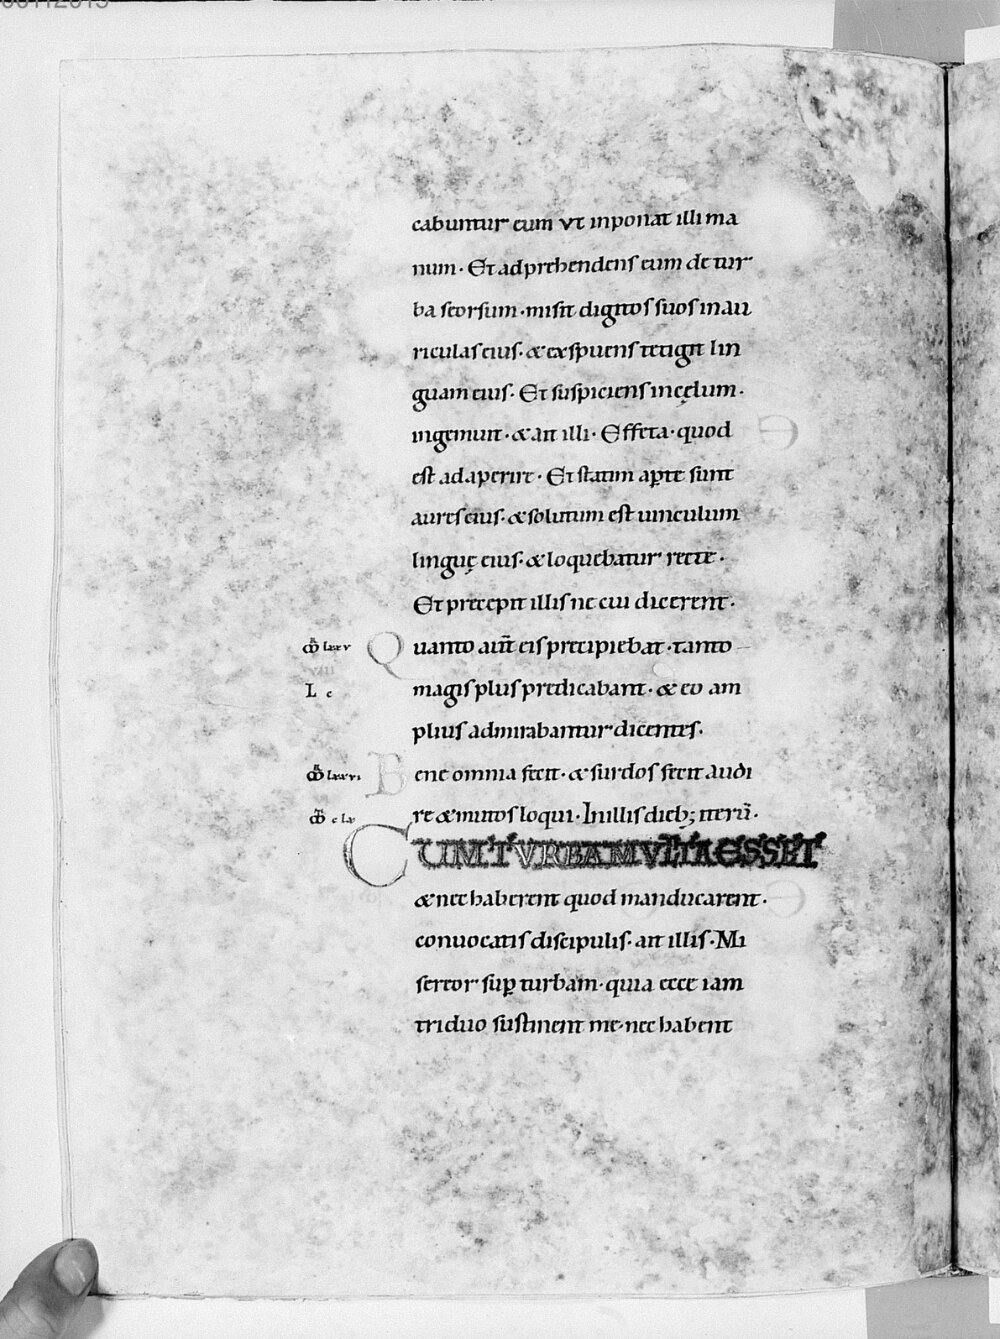 cabuntur eum vt inponat illi ma
num · Et adprehendens eum de tur
ba seorsum · misit digitos suos in au
riculas eius · & exspuens tetigit lin
guam eius · Et suspiciens in cęlum ·
ingemuit · & ait illi · Effeta · quod
est adaperire · Et statim ap̲te sunt
aures eius · & solutum est uinculum
linguę eius · & loquebatur recte ·
Et precepit illis ne cui dicerent ·
Quanto aut̄ eis precipiebat · tanto
magis plus predicabant · & eo am
plius admirabantur dicentes ·
Bene omnia fecit · & surdos fecit audi
re & mutos loqui · In illis dieb; iterū ·
CUM TVRBA MVLTA ESSET
& nec haberent quod manducarent ·
conuocatis discipulis · ait illis · Mi
sereor sup̲ turbam · quia ecce iam
triduo sustinent me · nec habent